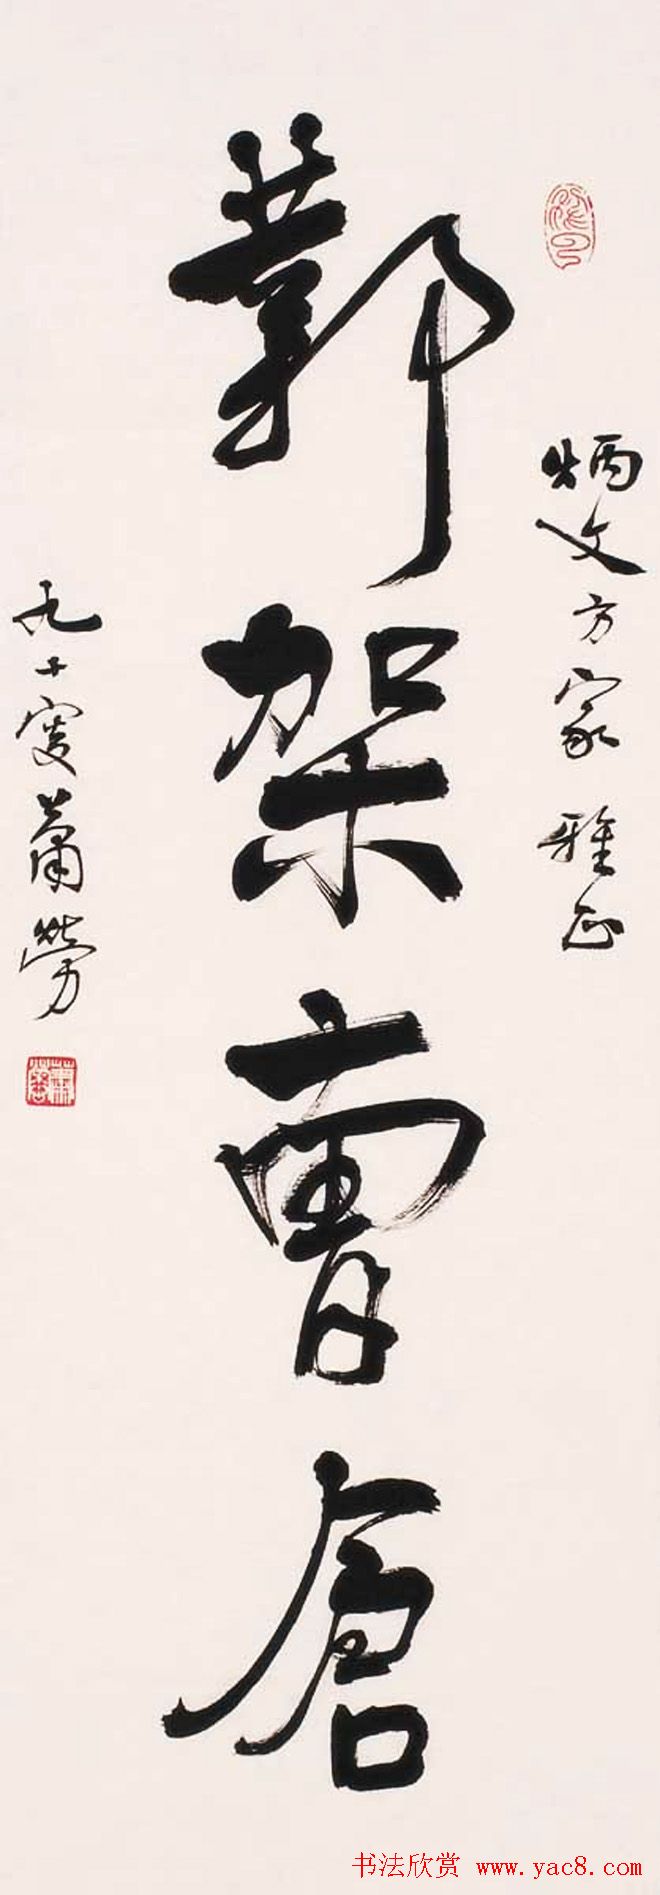 炳文方家雅正
鄴架曹倉
九十叟蕭勞
书法欣赏 www.yac8.com